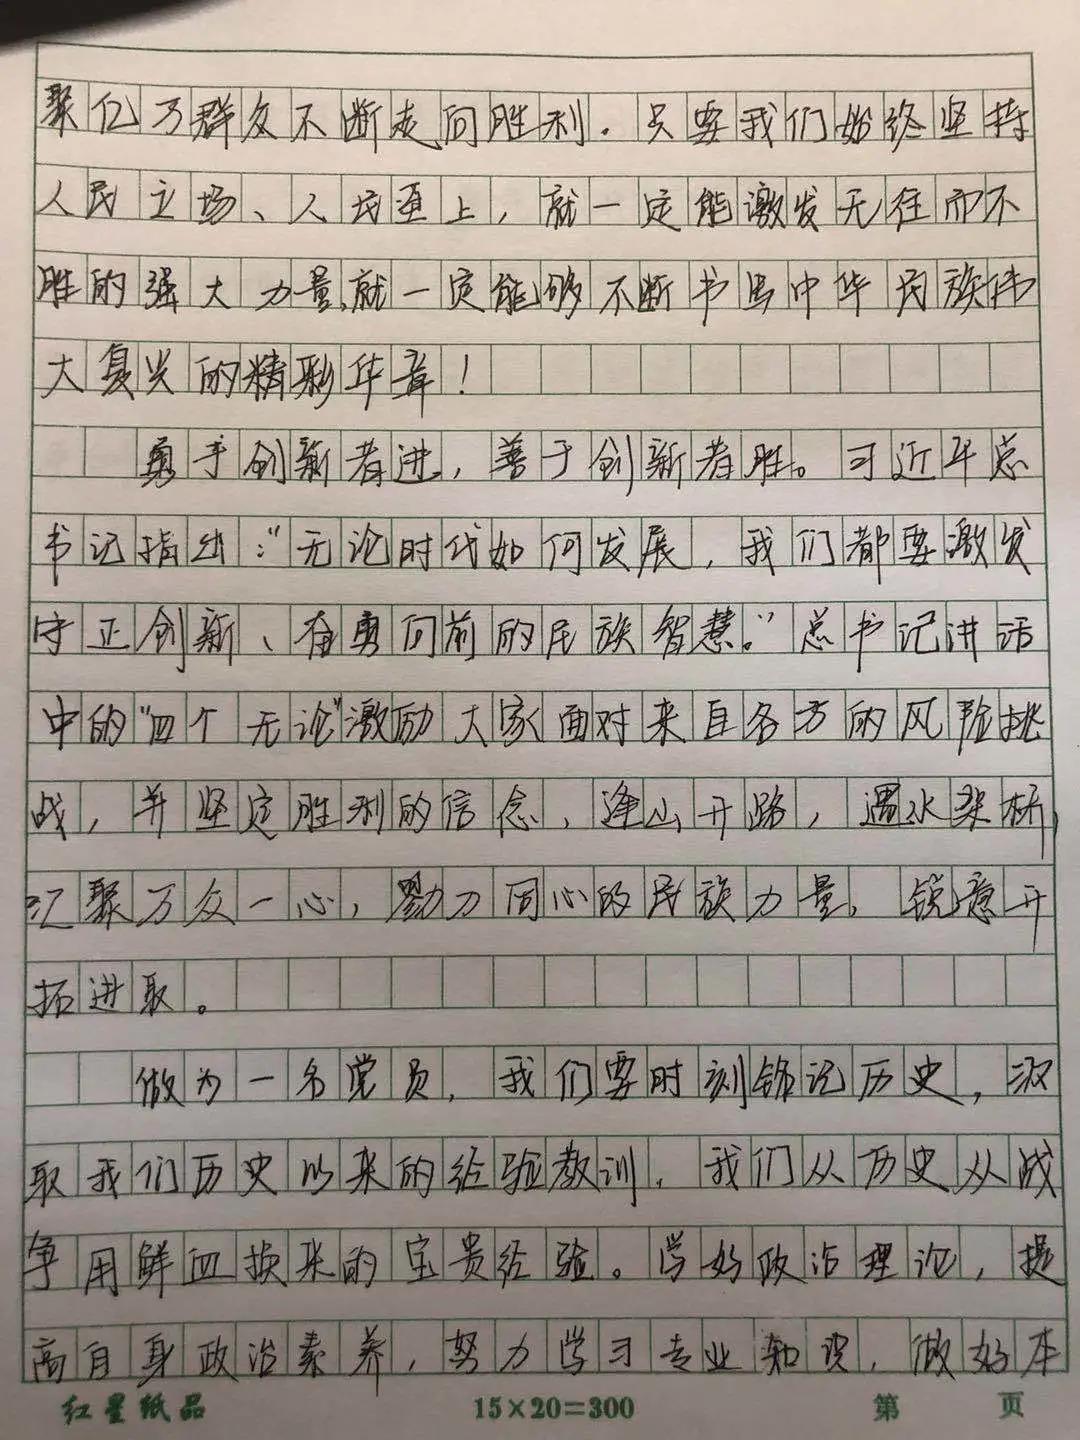 聚亿万群众不断走向胜利。只要我们始终坚持
人民立场、人民至上，就一定能激发无往而不
胜的强大力量，就一定能够不断书写中华民族伟
大复兴的精彩华章！
勇于创新者进，善于创新者胜。习近平总
书记指出："无论时代如何发展，我们都要激发
守正创新、奋勇向前的民族智慧。"总书记讲话
中的"四个无论"激励大家面对来自各方的风险挑
战，并坚定胜利的信念，逢山开路，遇水架桥，
汇聚万众一心，勠力同心的民族力量，锐意开
拓进取。
做为一名党员，我们要时刻铭记历史，汲
取我们历史以来的经验教训，我们从历史从战
争用鲜血换来的宝贵经验。学好政治理论，提
高自身政治素养，努力学习专业知识，做好本
红星纸品 15×20=300 第 页